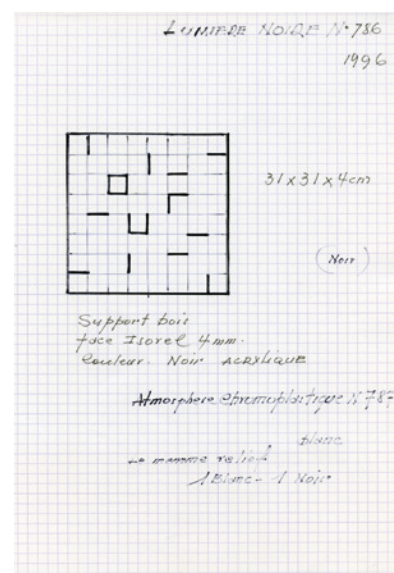 LUMIERE NOIRE N°786
1996
31x31x4cm
(Noir)
Support bois
face Isorel 4mm.
Couleur. Noir ACRYLIQUE
Atmosphere chromoplastique N°787
blanc
relief
1 Blanc - 1 Noir